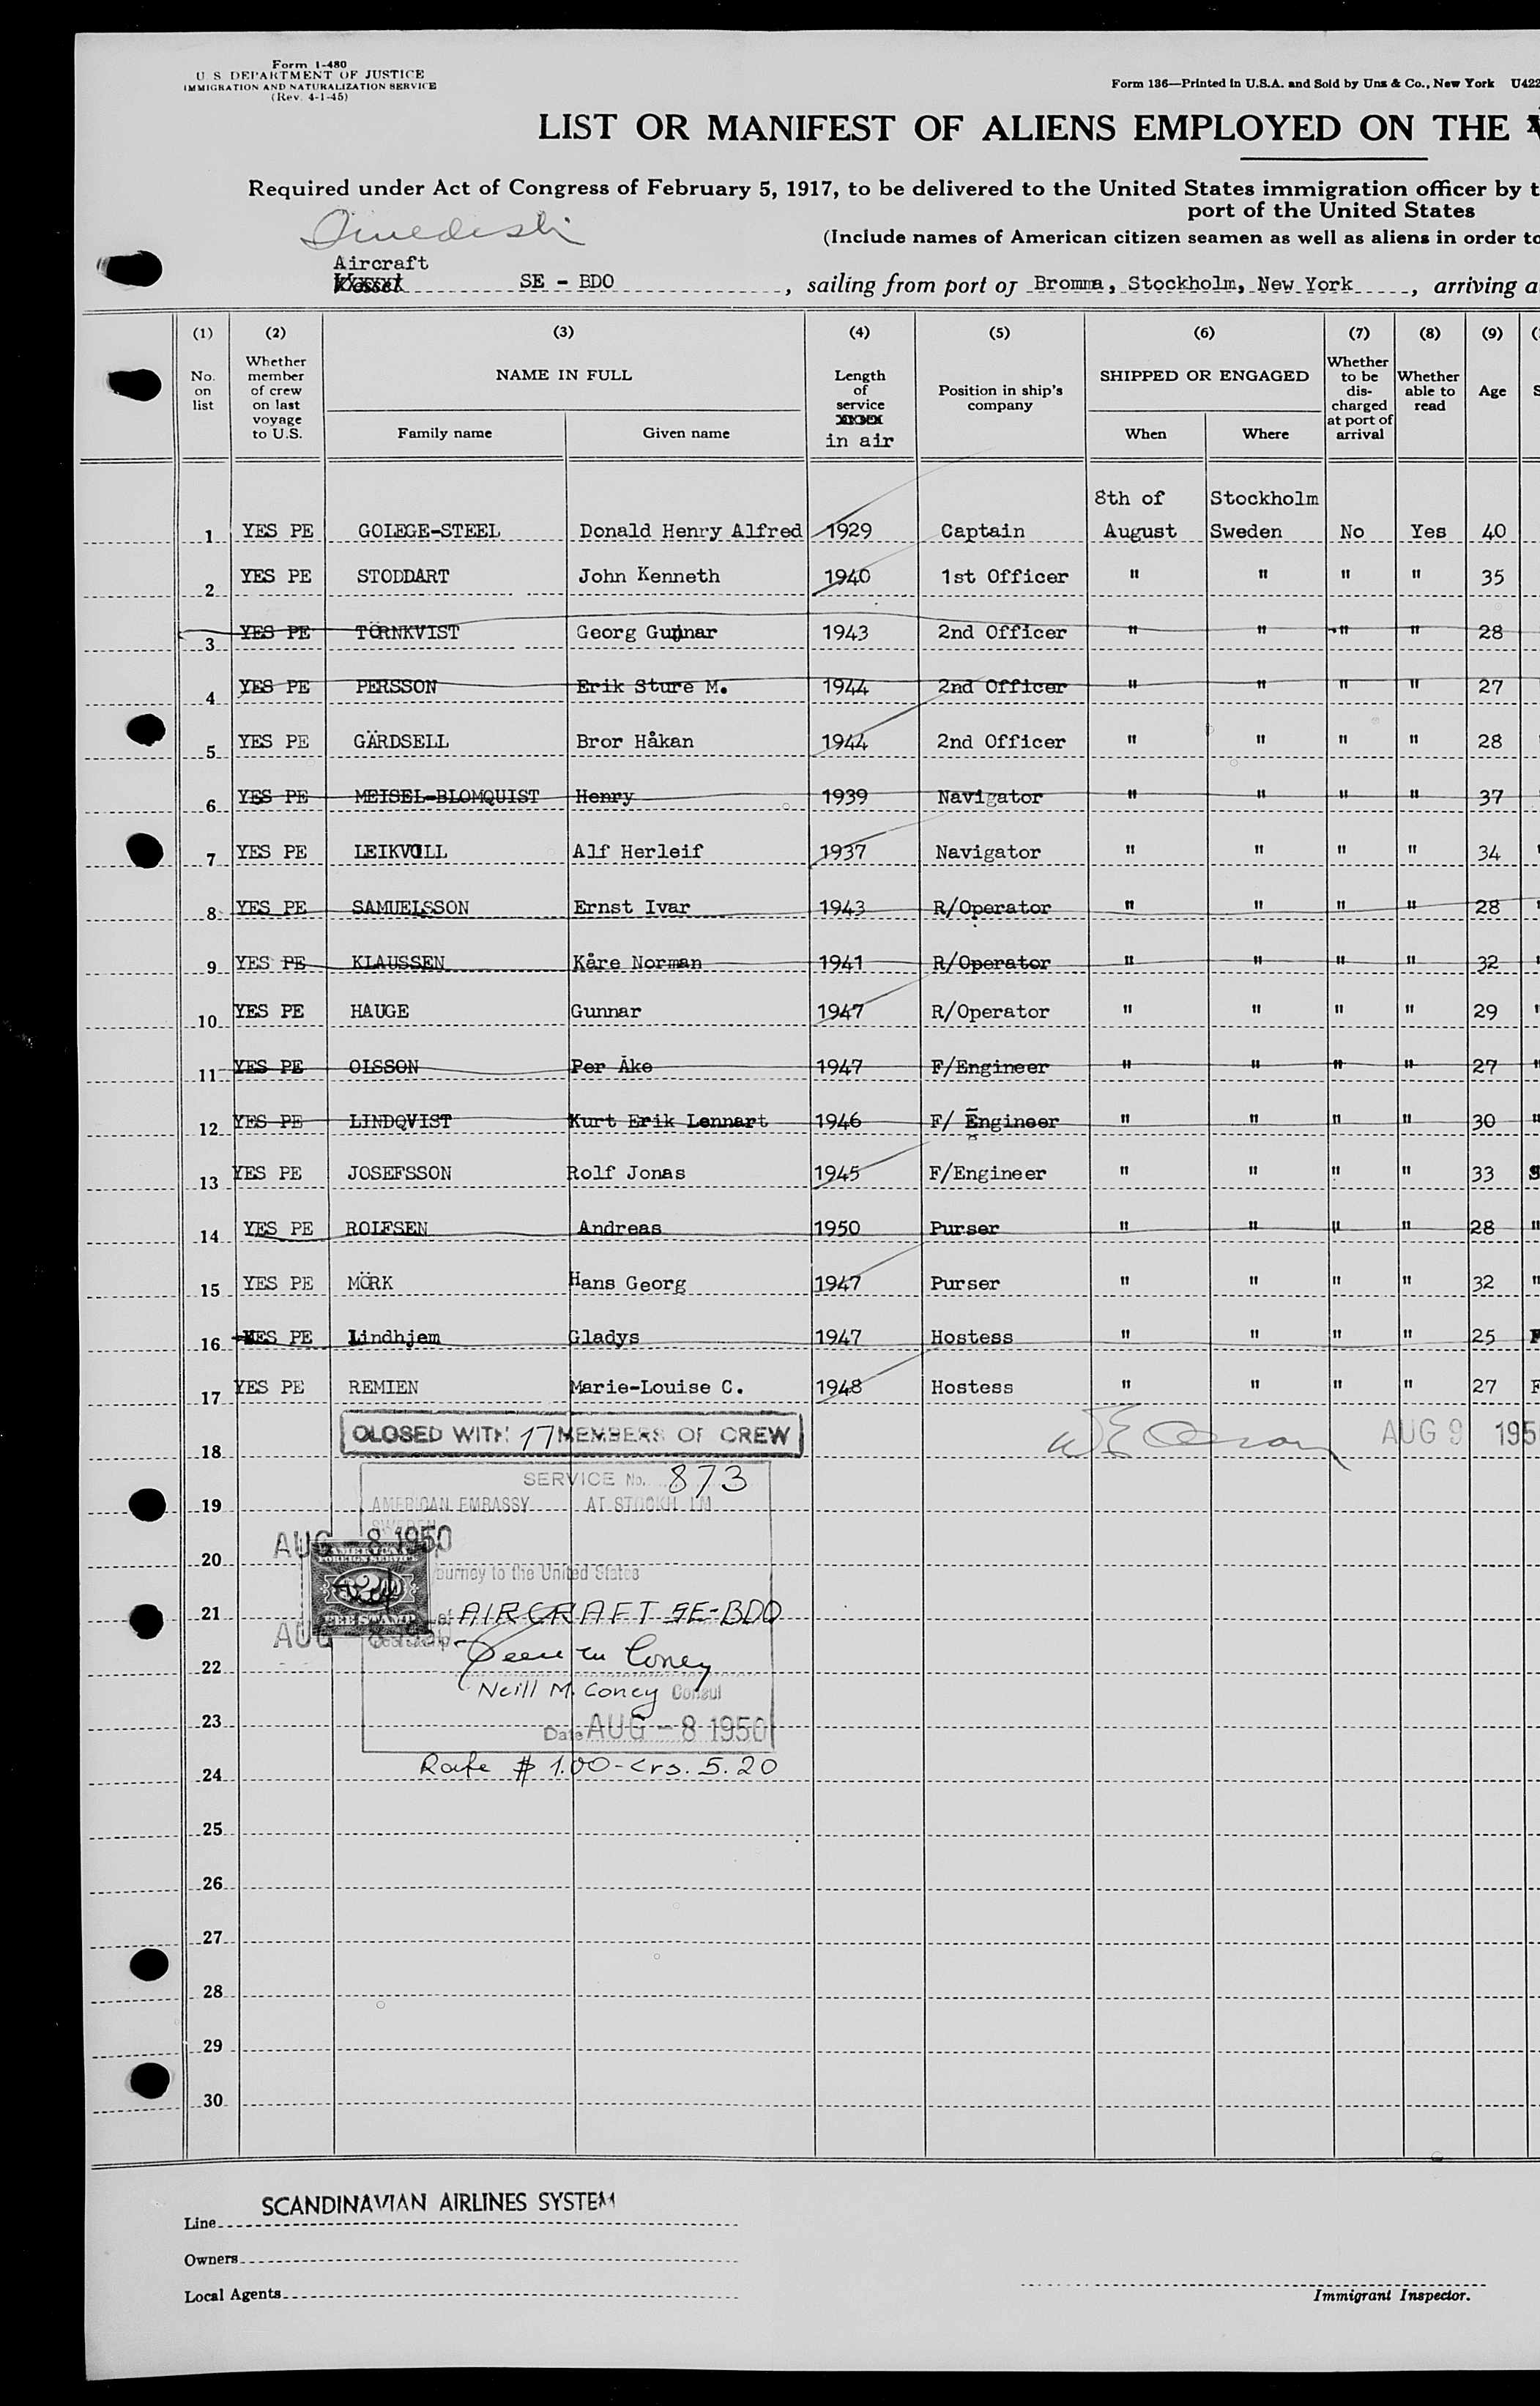 Form I-480
U. S. DEPARTMENT OF JUSTICE
IMMIGRATION AND NATURALIZATION SERVICE
(Rev. 4-1-45)
Form 136—Printed in U.S.A. and Sold by Unz & Co., New York U422
LIST OR MANIFEST OF ALIENS EMPLOYED ON THE
Required under Act of Congress of February 5, 1917, to be delivered to the United States immigration officer by t
port of the United States
(Include names of American citizen seamen as well as aliens in order to
Swedish
Aircraft
Vessel SE - BDO , sailing from port of Bromma, Stockholm, New York , arriving a
(1) (2) (3) (4) (5) (6) (7) (8) (9)
No. on list
Whether member of crew on last voyage to U.S.
NAME IN FULL
Family name Given name
Length of service in air
Position in ship's company
SHIPPED OR ENGAGED
When Where
Whether to be discharged at port of arrival
Whether able to read
Age
8th of Stockholm
1 YES PE GOLEGE-STEEL Donald Henry Alfred 1929 Captain August Sweden No Yes 40
2 YES PE STODDART John Kenneth 1940 1st Officer " " " " 35
3 YES PE TÖRNKVIST Georg Gunnar 1943 2nd Officer " " " " 28
4 YES PE PERSSON Erik Sture M. 1944 2nd Officer " " " " 27
5 YES PE GÄRDSELL Bror Håkan 1944 2nd Officer " " " " 28
6 YES PE MEISEL-BLOMQUIST Henry 1939 Navigator " " " " 37
7 YES PE LEIKVOLL Alf Herleif 1937 Navigator " " " " 34
8 YES PE SAMUELSSON Ernst Ivar 1943 R/Operator " " " " 28
9 YES PE KLAUSSEN Kåre Norman 1941 R/Operator " " " " 32
10 YES PE HAUGE Gunnar 1947 R/Operator " " " " 29
11 YES PE OLSSON Per Åke 1947 F/Engineer " " " " 27
12 YES PE LINDQVIST Kurt Erik Lennart 1946 F/ Engineer " " " " 30
13 YES PE JOSEFSSON Rolf Jonas 1945 F/Engineer " " " " 33
14 YES PE ROLFSEN Andreas 1950 Purser " " " " 28
15 YES PE MÖRK Hans Georg 1947 Purser " " " " 32
16 YES PE Lindhjem Gladys 1947 Hostess " " " " 25 F
17 YES PE REMIEN Marie-Louise C. 1948 Hostess " " " " 27 F
18 CLOSED WITH 17 MEMBERS OF CREW AUG 9 195
SERVICE No. 873
19 AMERICAN EMBASSY AT STOCKHOLM
SWEDEN
AUG - 8 1950
20
AMERICAN FOREIGN SERVICE
FEE STAMP
Journey to the United States
21 of AIRCRAFT SE-BDO
AUG
22
Neill M. Coney Consul
23
Date AUG - 8 1950
24 Rate $ 1.00 - Crs. 5.20
25
26
27
28
29
30
Line SCANDINAVIAN AIRLINES SYSTEM
Owners
Local Agents
Immigrant Inspector.